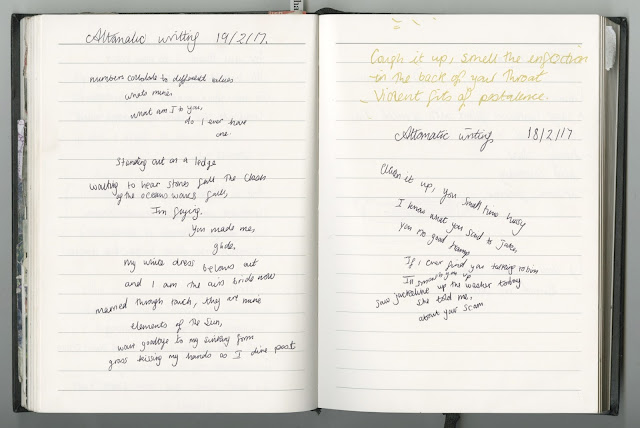 Altamatic writing 19/2/17.
numbers corrolate to different values
whats mine,
what am I to you,
do I ever have
one.
Standing out on a ledge
waiting to hear stones fall The Clash
of the oceans waves faults,
I'm flying.
You made me,
glide.
My white dress belows out
and I am the airs bride now
married through touch, they are mine
elements of the Sun,
wave goodbye to my sinking form
grass kissing my hands as I dive past
Cough it up, smell the infection
in the back of your throat
Violent fits of
Altomatic writing 18/2/17
Clean it up, you small time hussy
I know what you said to Jake,
you no good tramp
If I ever find you talking to him
I'll you up
Saw jackieline up the today
She told me,
about your scam